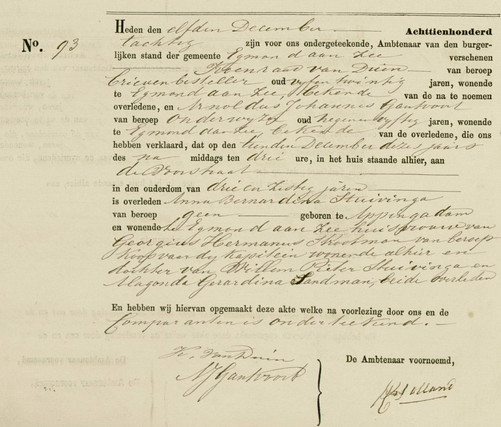 No. 93
Heden den elfden December Achttienhonderd
tachtig zijn voor ons ondergeteekende, Ambtenaar van den burger-
lijken stand der gemeente Egmond aan Zee verschenen
Koenraad van Duin van beroep
brievenbesteller oud twintig jaren, wonende
te Egmond aan Zee, bekende van de na te noemen
overledene, en Arnoldus Johannes Gantvoort
van beroep Onderwyzer oud negenenvyftig jaren, wonende
te Egmond aan Zee, bekende van de overledene, die ons
hebben verklaard, dat op den tienden December dezes jaars
des na middags ten drie ure, in het huis staande alhier, aan
de Voorstraat
in den ouderdom van drie en zestig jaren
is overleden Anna Bernardina Stuivinga
van beroep geen geboren te Appingadam
en wonende te Egmond aan Zee huisvrouw van
Georgius Hermanus Strootman van beroep
Koopvaardy kapitein wonende alhier en
dochter van Willem Pieter Stuivinga en
Gerardina Landman, beide overleden
En hebben wij hiervan opgemaakt deze akte welke na voorlezing door ons en de
Comparanten is onderteekend.
K. van Duin
AJ Gantvoort
De Ambtenaar voornoemd,